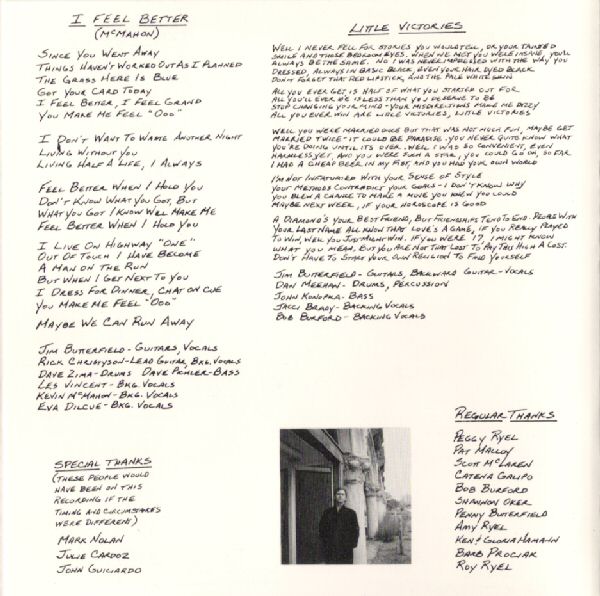 I Feel Better
(McMahon)
Since You Went Away
Things Haven't Worked Out As I Planned
The Grass Here Is Blue
Got Your Card Today
I Feel Better, I Feel Grand
You Make Me Feel "Ooo"
I Don't Want To Waste Another Night
Living Without You
Living Half A Life, I Always
Feel Better When I Hold You
Don't Know What You Got, But
What You Got I Know Will Make Me
Feel Better When I Hold You
I Live On Highway "One"
Out Of Touch I Have Become
A Man On The Run
But When I Get Next To You
I Dress For Dinner, Chat On Cue
You Make Me Feel "Ooo"
Maybe We Can Run Away
Jim Butterfield - Guitars, Vocals
Rick Christyson - Lead Guitar, Bkg. Vocals
Dave Zima - Drums Dave Pichler - Bass
Les Vincent - Bkg. Vocals
Kevin McMahon - Bkg. Vocals
Eva Dilcue - Bkg. Vocals
Special Thanks
(These People Would
Have Been On This
Recording If The
Timing And Circumstances
Were Different)
Mark Nolan
Julie Cardoz
John Guiliardo
Little Victories
Well I Never Fell For Stories You Would Tell, Or Your Tainted
Smile And Those Bedroom Eyes. When We Met You Were Insane, You'll
Always Be The Same. No I Was Never Impressed With The Way You
Dressed, Always In Basic Black, Even Your Hair Dyed Black
Don't Forget That Red Lipstick, And The Pale White Skin
All You Ever Get Is Half Of What You Started Out For
All You'll Ever Be Is Less Than You Deserve To Be
Stop Changing Your Mind - Your Misdirections Make Me Dizzy
All You Ever Win Are Little Victories, Little Victories
Well You Were Married Once But That Was Not Much Fun, Maybe Get
Married Twice - It Could Be Paradise. You Never Quite Know What
You're Doing Until It's Over. Well I Was So Convenient, Even
Harmless Yet, And You Were Such A Star, You Could Go On, So Far
I Had A Cheap Beer In My Fist, And You Had Your Own World
I'm Not Infatuated With Your Sense Of Style
Your Methods Contradict Your Goals - I Don't Know Why
You Blew A Chance To Make A Move You Knew You Could
Maybe Next Week, If Your Horoscope Is Good
A Diamond's Your Best Friend, But Friendships Tend To End. People With
Your Last Name All Know That Love's A Game, If You Really Played
To Win, Well You Just Might Win. If You Were 17, I Might Know
What You Mean, But You Are Not That Lost To Pay This High A Cost.
Don't Have To Start Your Own Religion To Find Yourself
Jim Butterfield - Guitars, Backward Guitar - Vocals
Dan Meehan - Drums, Percussion
John Konopka - Bass
Jacci Brady - Backing Vocals
Bob Burford - Backing Vocals
Regular Thanks
Peggy Ryel
Pat Malloy
Scott McLaren
Catena Galipo
Bob Burford
Shannon Oker
Penny Butterfield
Amy Ryel
Ken & Gloria
Barb Prociak
Roy Ryel